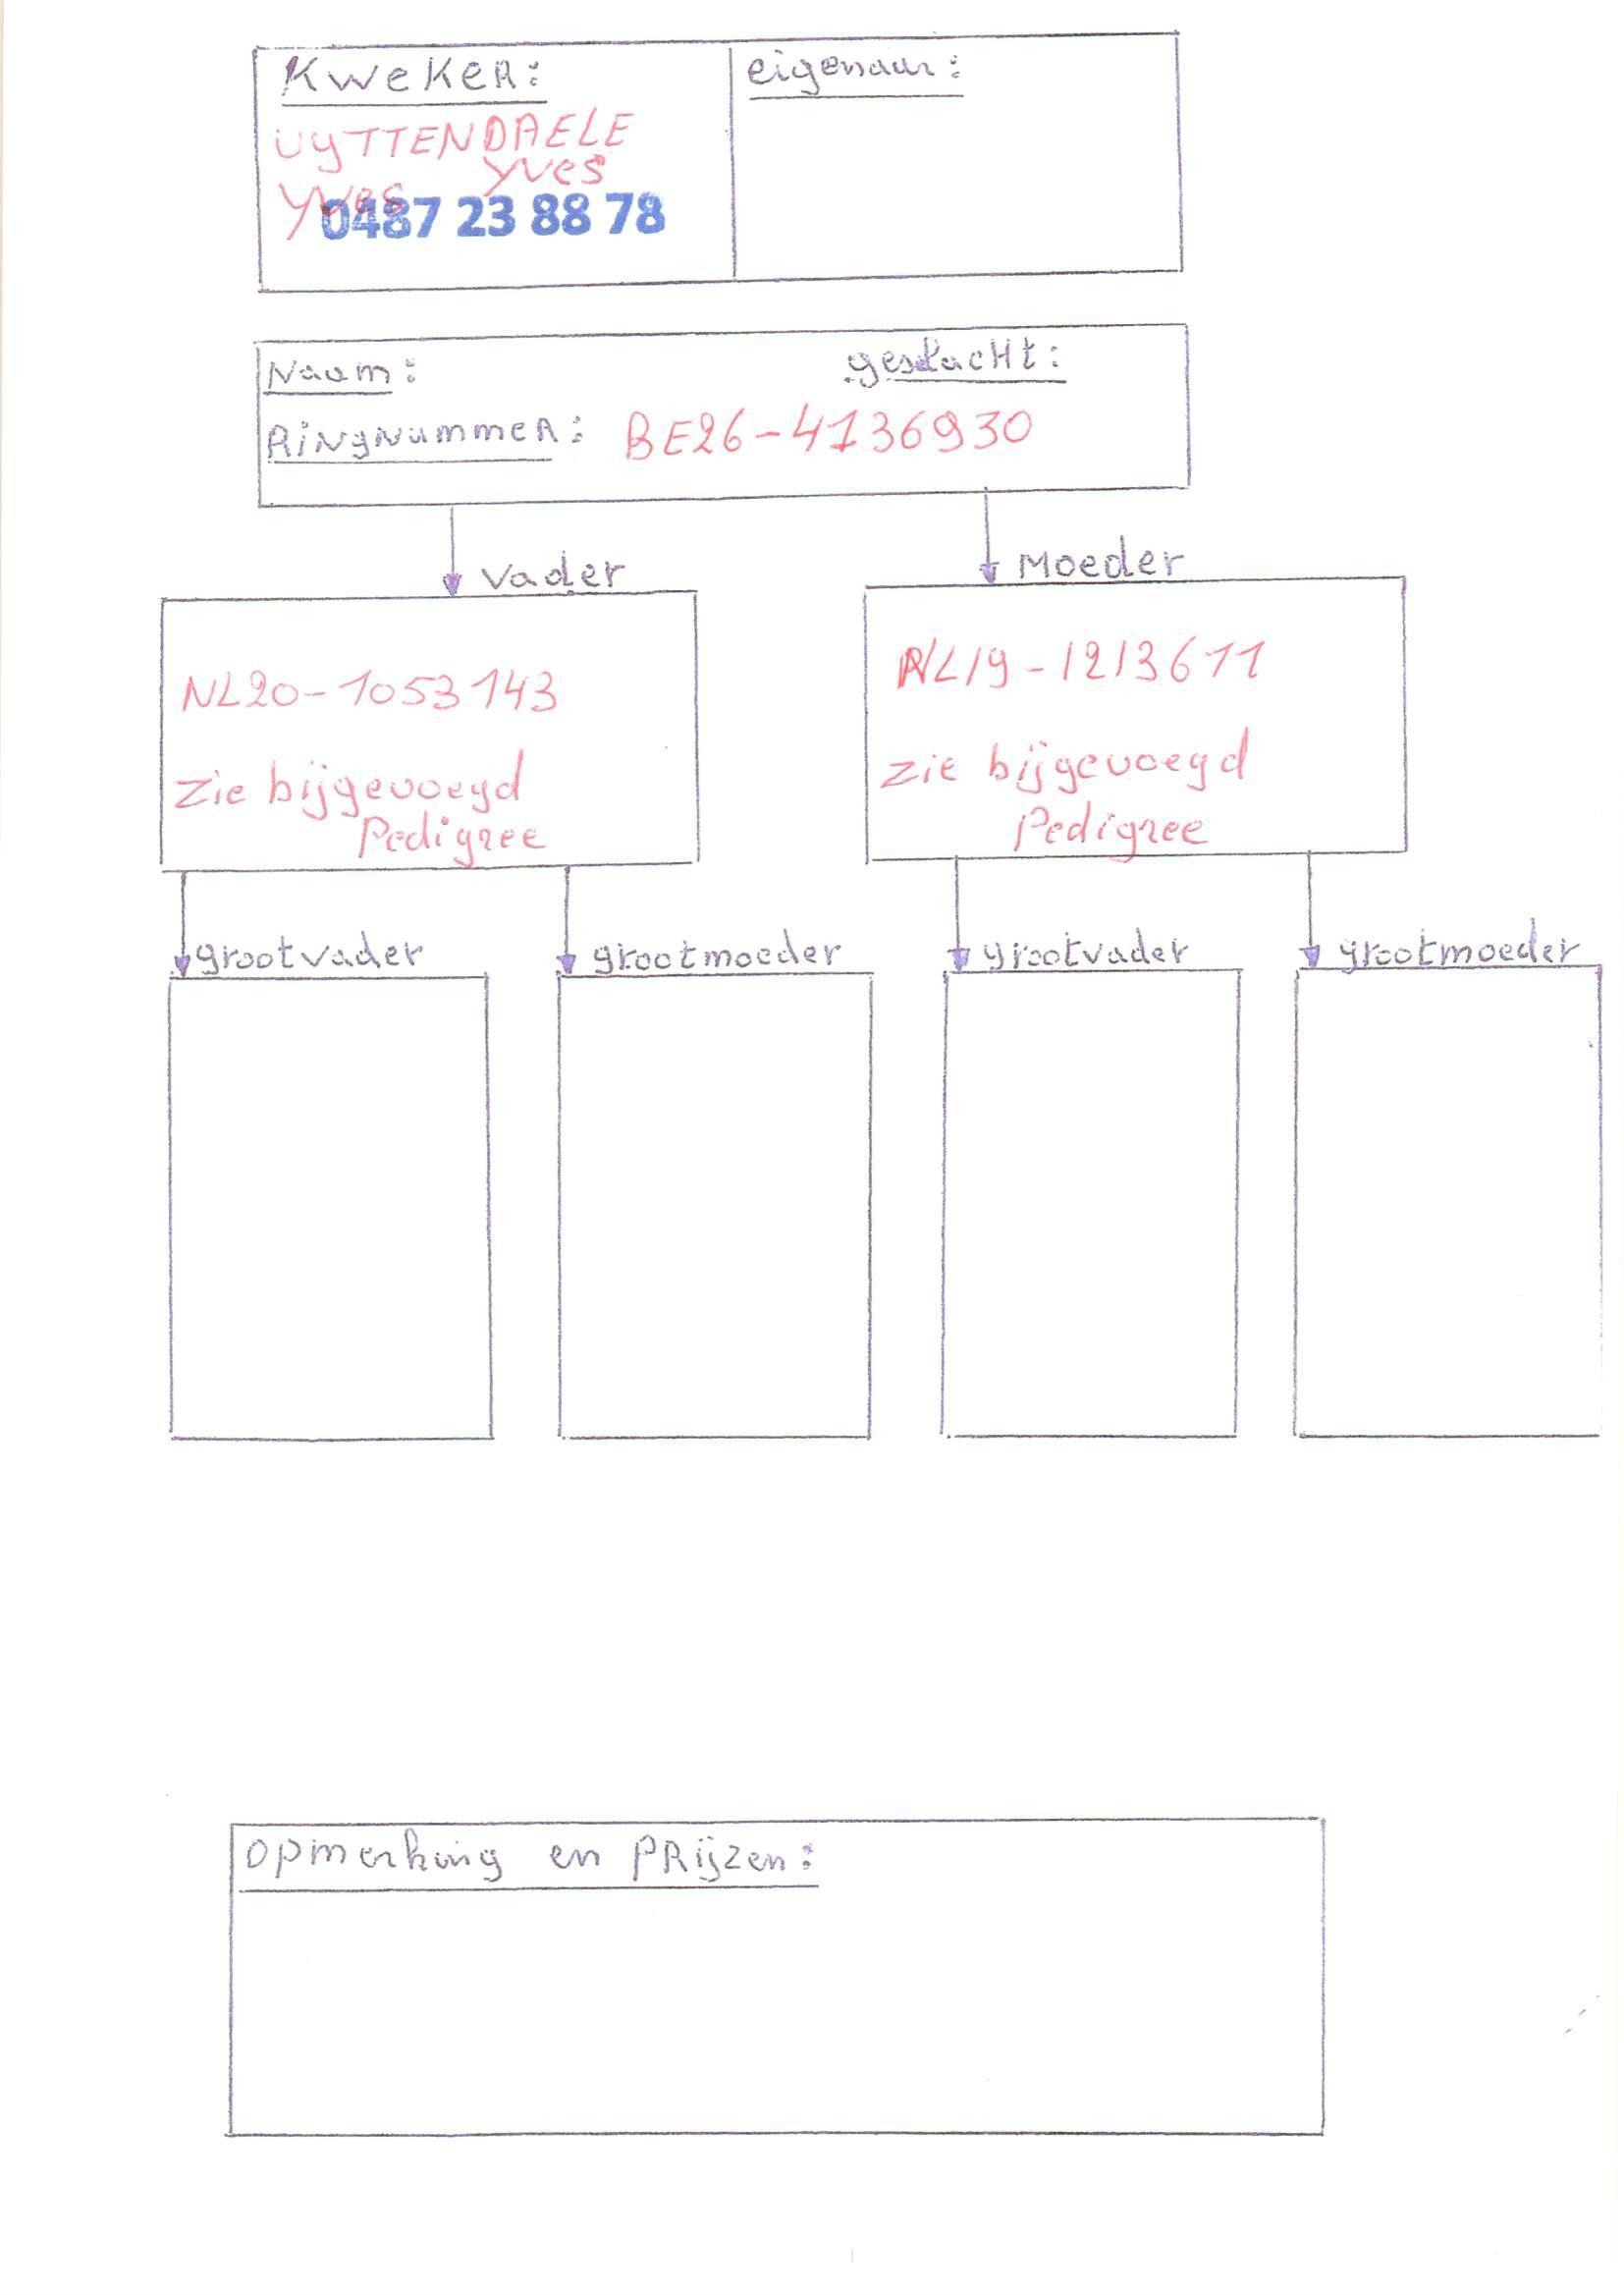 Kweker:
UYTTENDAELE
Yves
Yves
0487 23 88 78
eigenaar:
Naam:
geslacht:
Ringnummer: BE26-4136930
Vader
Moeder
NL20-1053143
zie bijgevoegd
Pedigree
NL19-1213611
zie bijgevoegd
Pedigree
grootvader
grootmoeder
grootvader
grootmoeder
opmerking en PRijzen: